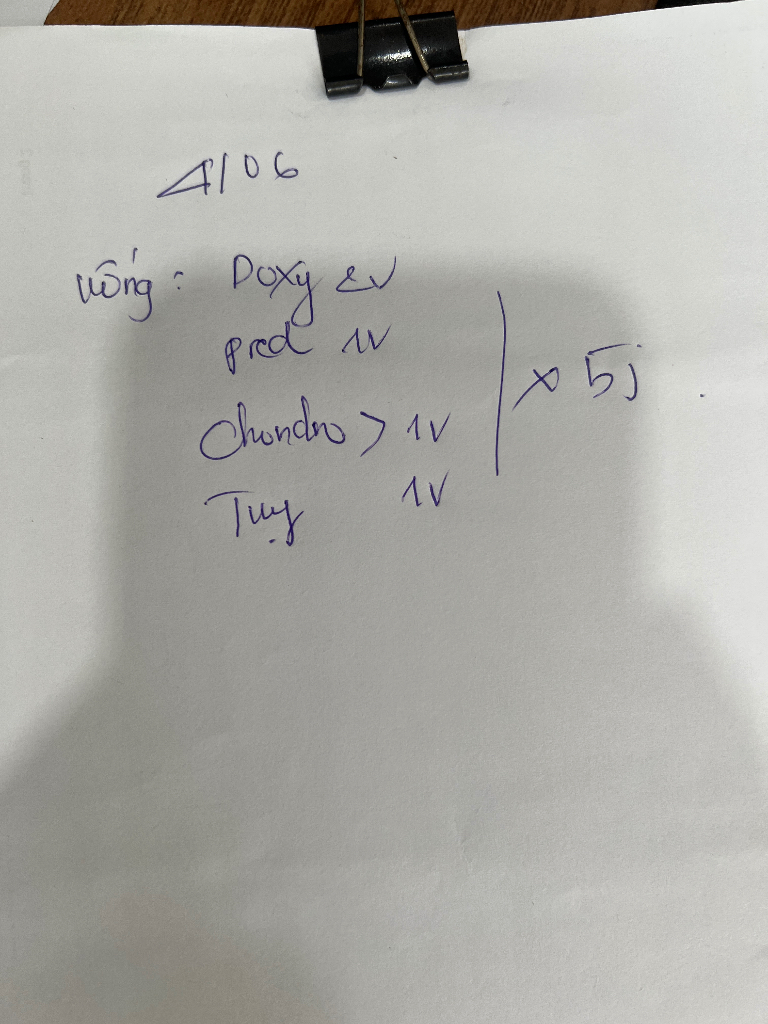 4/06
uống: Doxy 2V
pred 1V
Chondro > 1V
Tuỵ 1V
x 5j